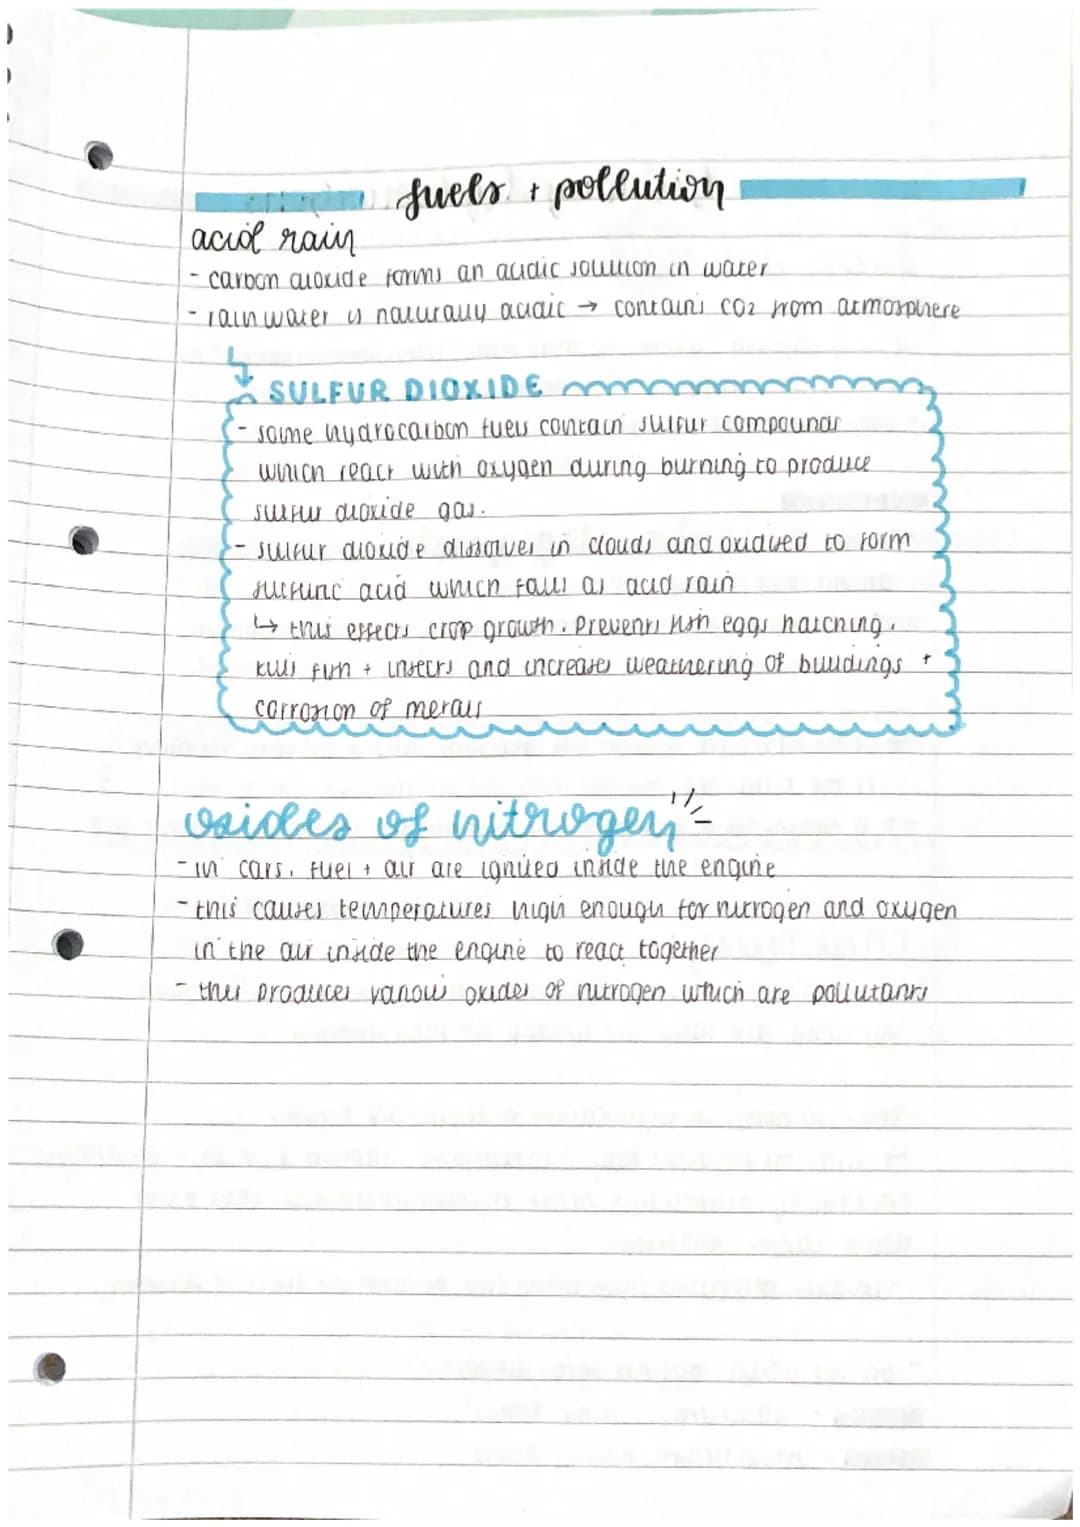 fuels + pollution
acid rain
- carbon dioxide forms an acidic solution in water
- rain water is naturally acidic → contains CO2 from atmosphere
↳ SULFUR DIOXIDE
- some hydrocarbon fuels contain sulfur compounds
which react with oxygen during burning to produce
sulfur dioxide gas.
- sulfur dioxide dissolves in clouds and oxidised to form
sulfuric acid which falls as acid rain
↳ this effects crop growth. Prevents fish eggs hatching.
kills fish + insects and increases weathering of buildings +
corrosion of metals
oxides of nitrogen
- in cars, fuel + air are ignited inside the engine
- this causes temperatures high enough for nitrogen and oxygen
in the air inside the engine to react together
- this produces various oxides of nitrogen which are pollutants